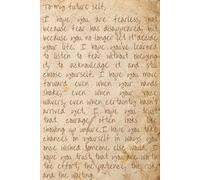 To my future self,
I hope you are fearless, not
because fear has disappeared, but
because you no longer let it decide
your life. I hope you've learned
to listen to fear without obeying
it, to acknowledge it and still
choose yourself. I hope you move
forward even when your hands
shake, even when your voice
wavers, even when certainty hasn't
arrived yet. I hope you trust
that courage often looks like
showing up unsure. I hope you take
chances on yourself in ways you
once wished someone else would. I
hope you trust that you are worth
the effort, the patience, the risk,
and the waiting.